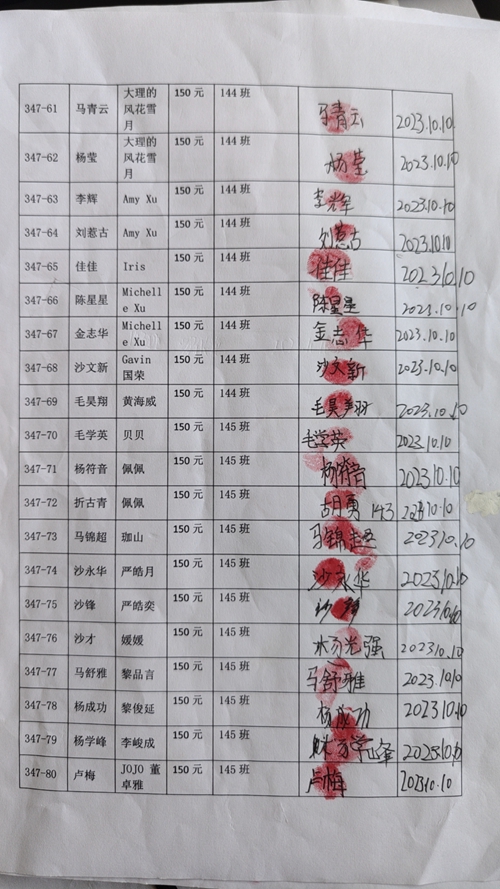 347-61 马青云 大理的风花雪月 150 元 144 班 马青云 2023.10.10
347-62 杨莹 大理的风花雪月 150 元 144 班 杨莹 2023.10.10
347-63 李辉 Amy Xu 150 元 144 班 李辉 2023.10.10
347-64 刘惹古 Amy Xu 150 元 144 班 刘惹古 2023.10.10
347-65 佳佳 Iris 150 元 144 班 佳佳 2023.10.10
347-66 陈星星 Michelle Xu 150 元 144 班 陈星星 2023.10.10
347-67 金志华 Michelle Xu 150 元 144 班 金志华 2023.10.10
347-68 沙文新 Gavin 国荣 150 元 144 班 沙文新 2023.10.10
347-69 毛昊翔 黄海威 150 元 144 班 毛昊翔 2023.10.10
347-70 毛学英 贝贝 150 元 145 班 毛学英 2023.10.10
347-71 杨符音 佩佩 150 元 145 班 杨符音 2023.10.10
347-72 折古青 佩佩 150 元 145 班 胡勇 143 10.10
347-73 马锦超 珈山 150 元 145 班 马锦超 2023.10.10
347-74 沙永华 严皓月 150 元 145 班 沙永华 2023.10.10
347-75 沙锋 严皓奕 150 元 145 班 沙锋 2023.10.10
347-76 沙才 媛媛 150 元 145 班 光强 2023.10.10
347-77 马舒雅 黎品言 150 元 145 班 马舒雅 2023.10.10
347-78 杨成功 黎俊延 150 元 145 班 杨成功 2023.10.10
347-79 杨学峰 李峻成 150 元 145 班 峰 2023.10.10
347-80 卢梅 JOJO 董卓雅 150 元 145 班 卢梅 2023.10.10